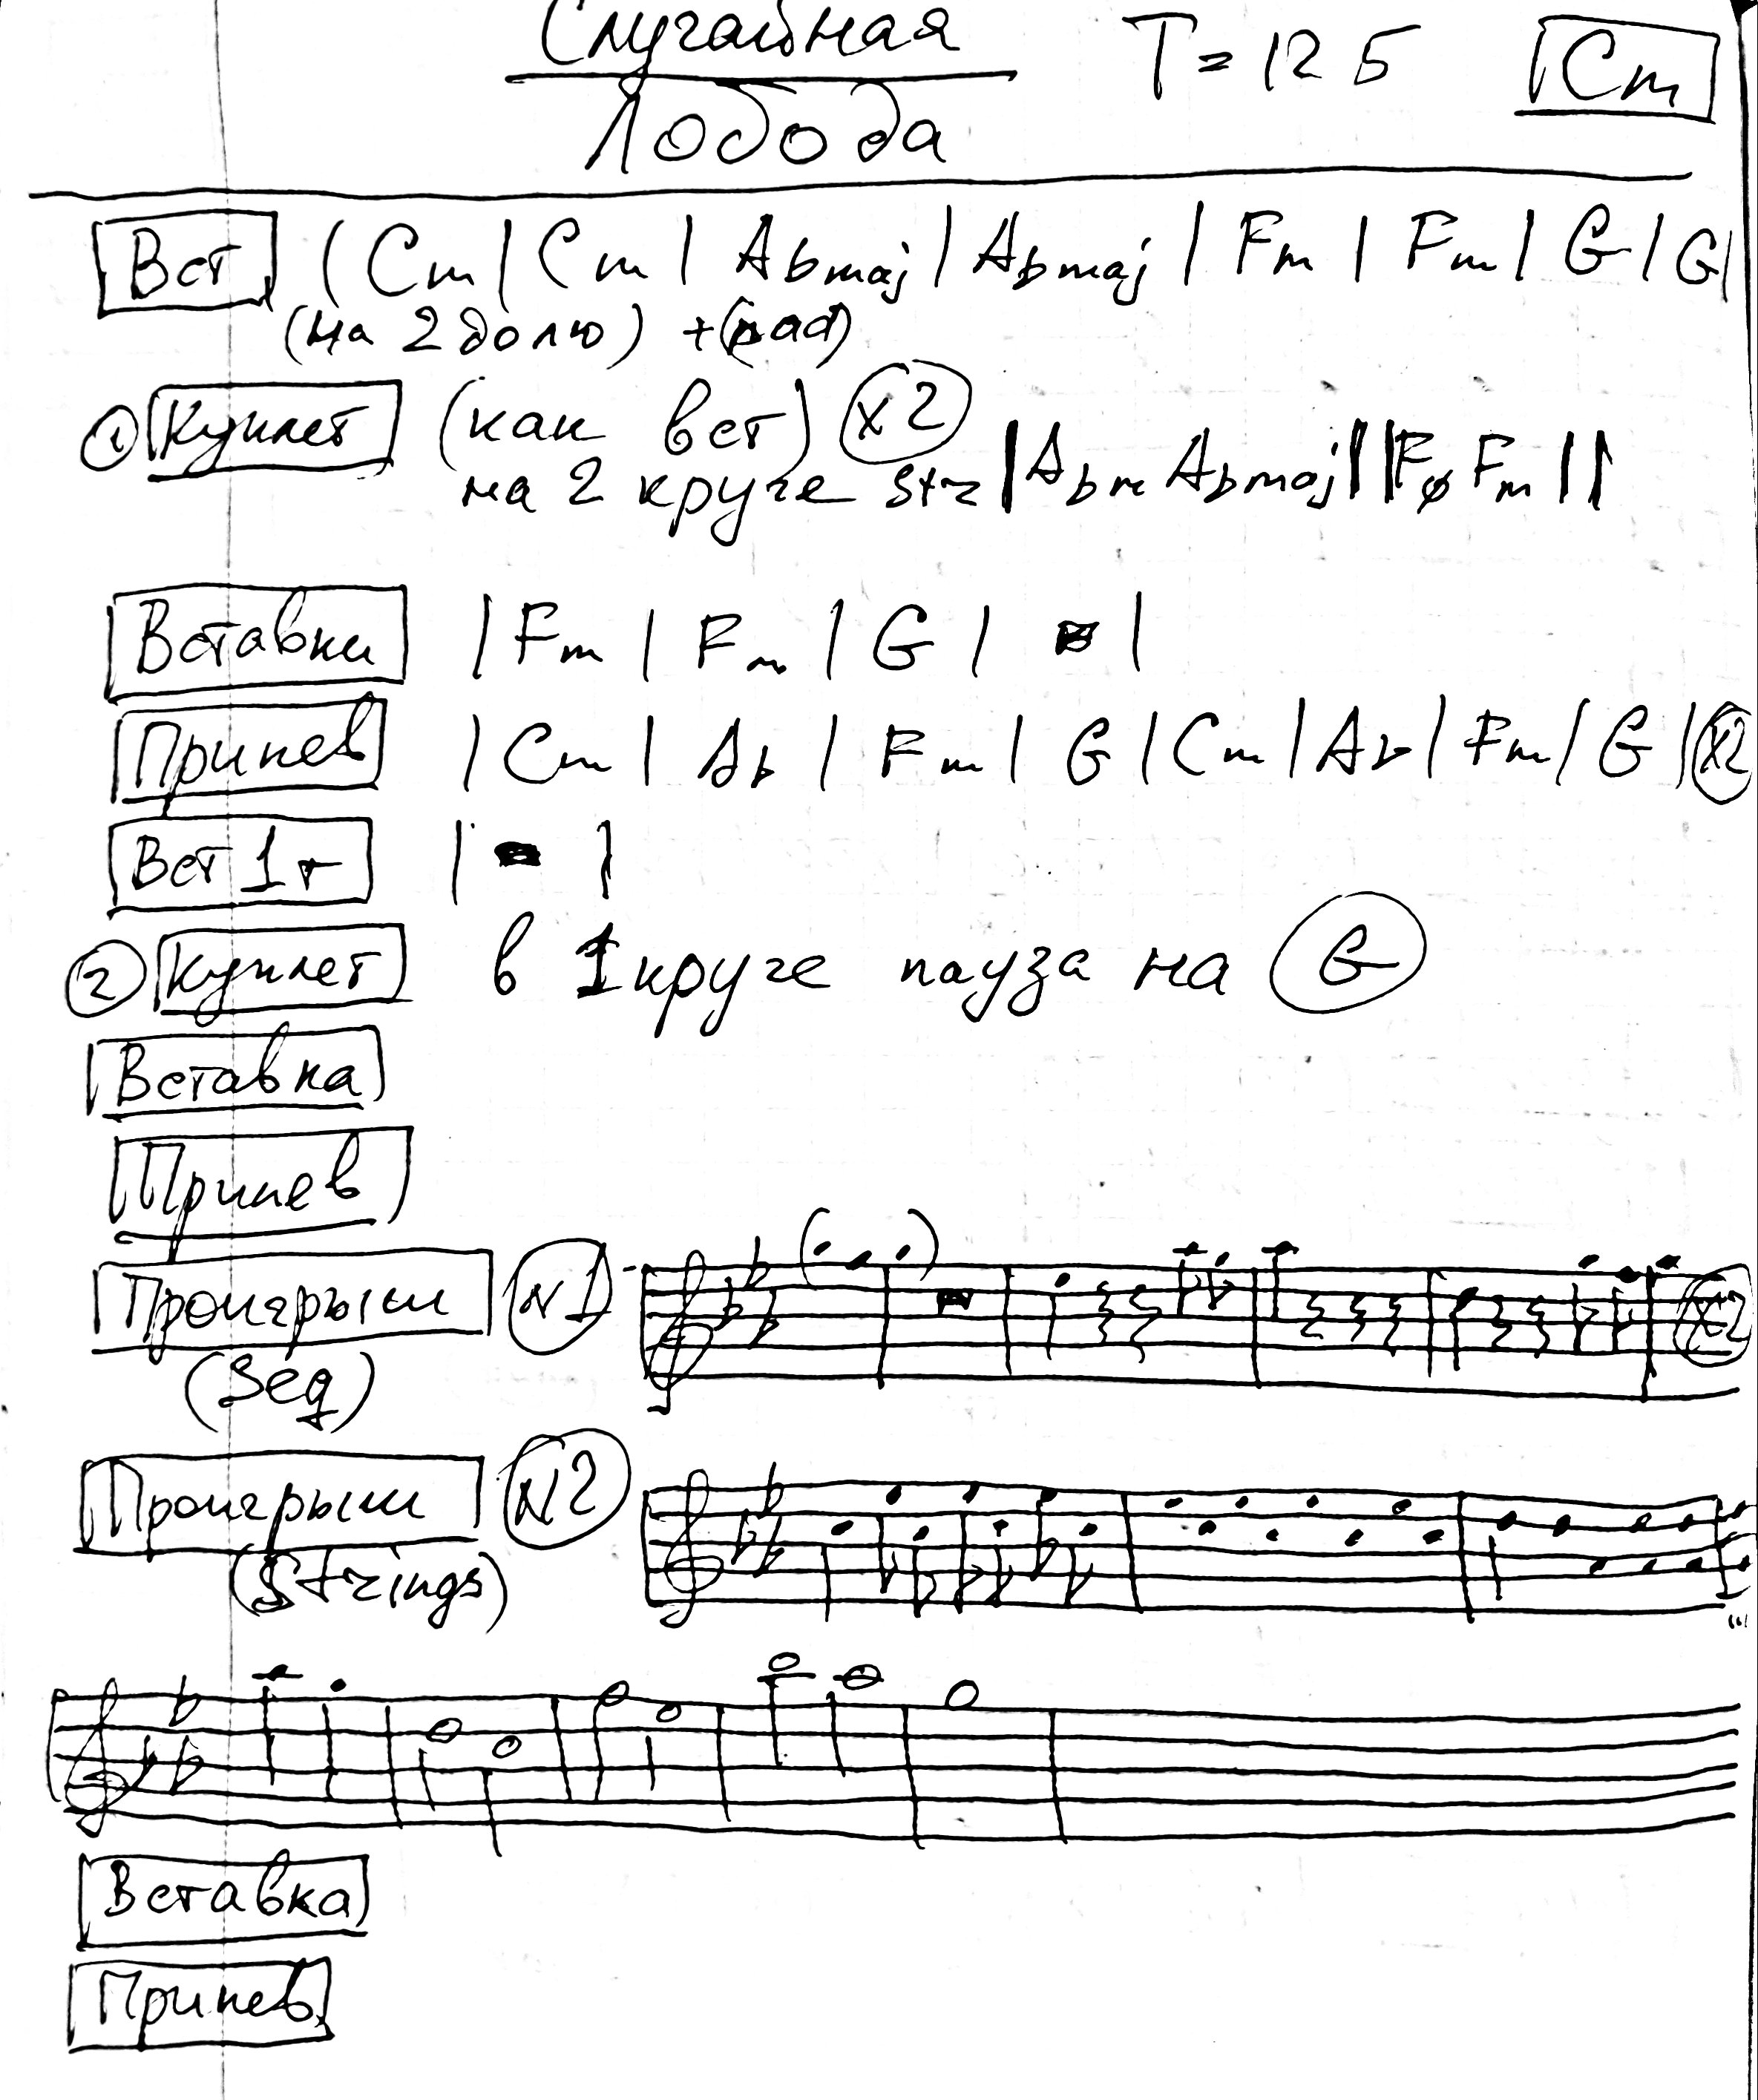 Случайная T=125 Cm
Лобода
Вст | Cm | Cm | Abmaj | Abmaj | Fm | Fm | G | G |
(на 2 долю) +(pad)
① Куплет (как вст) x2
на 2 круге str | Abm Abmaj || Fø Fm ||
Вставка | Fm | Fm | G | |
Припев | Cm | Ab | Fm | G | Cm | Ab | Fm | G | x2
Вст 1т | |
② Куплет в 1 круге пауза на G
Вставка
Припев
Проигрыш N1 x2
Проигрыш N2
(Strings)
Вставка
Припев